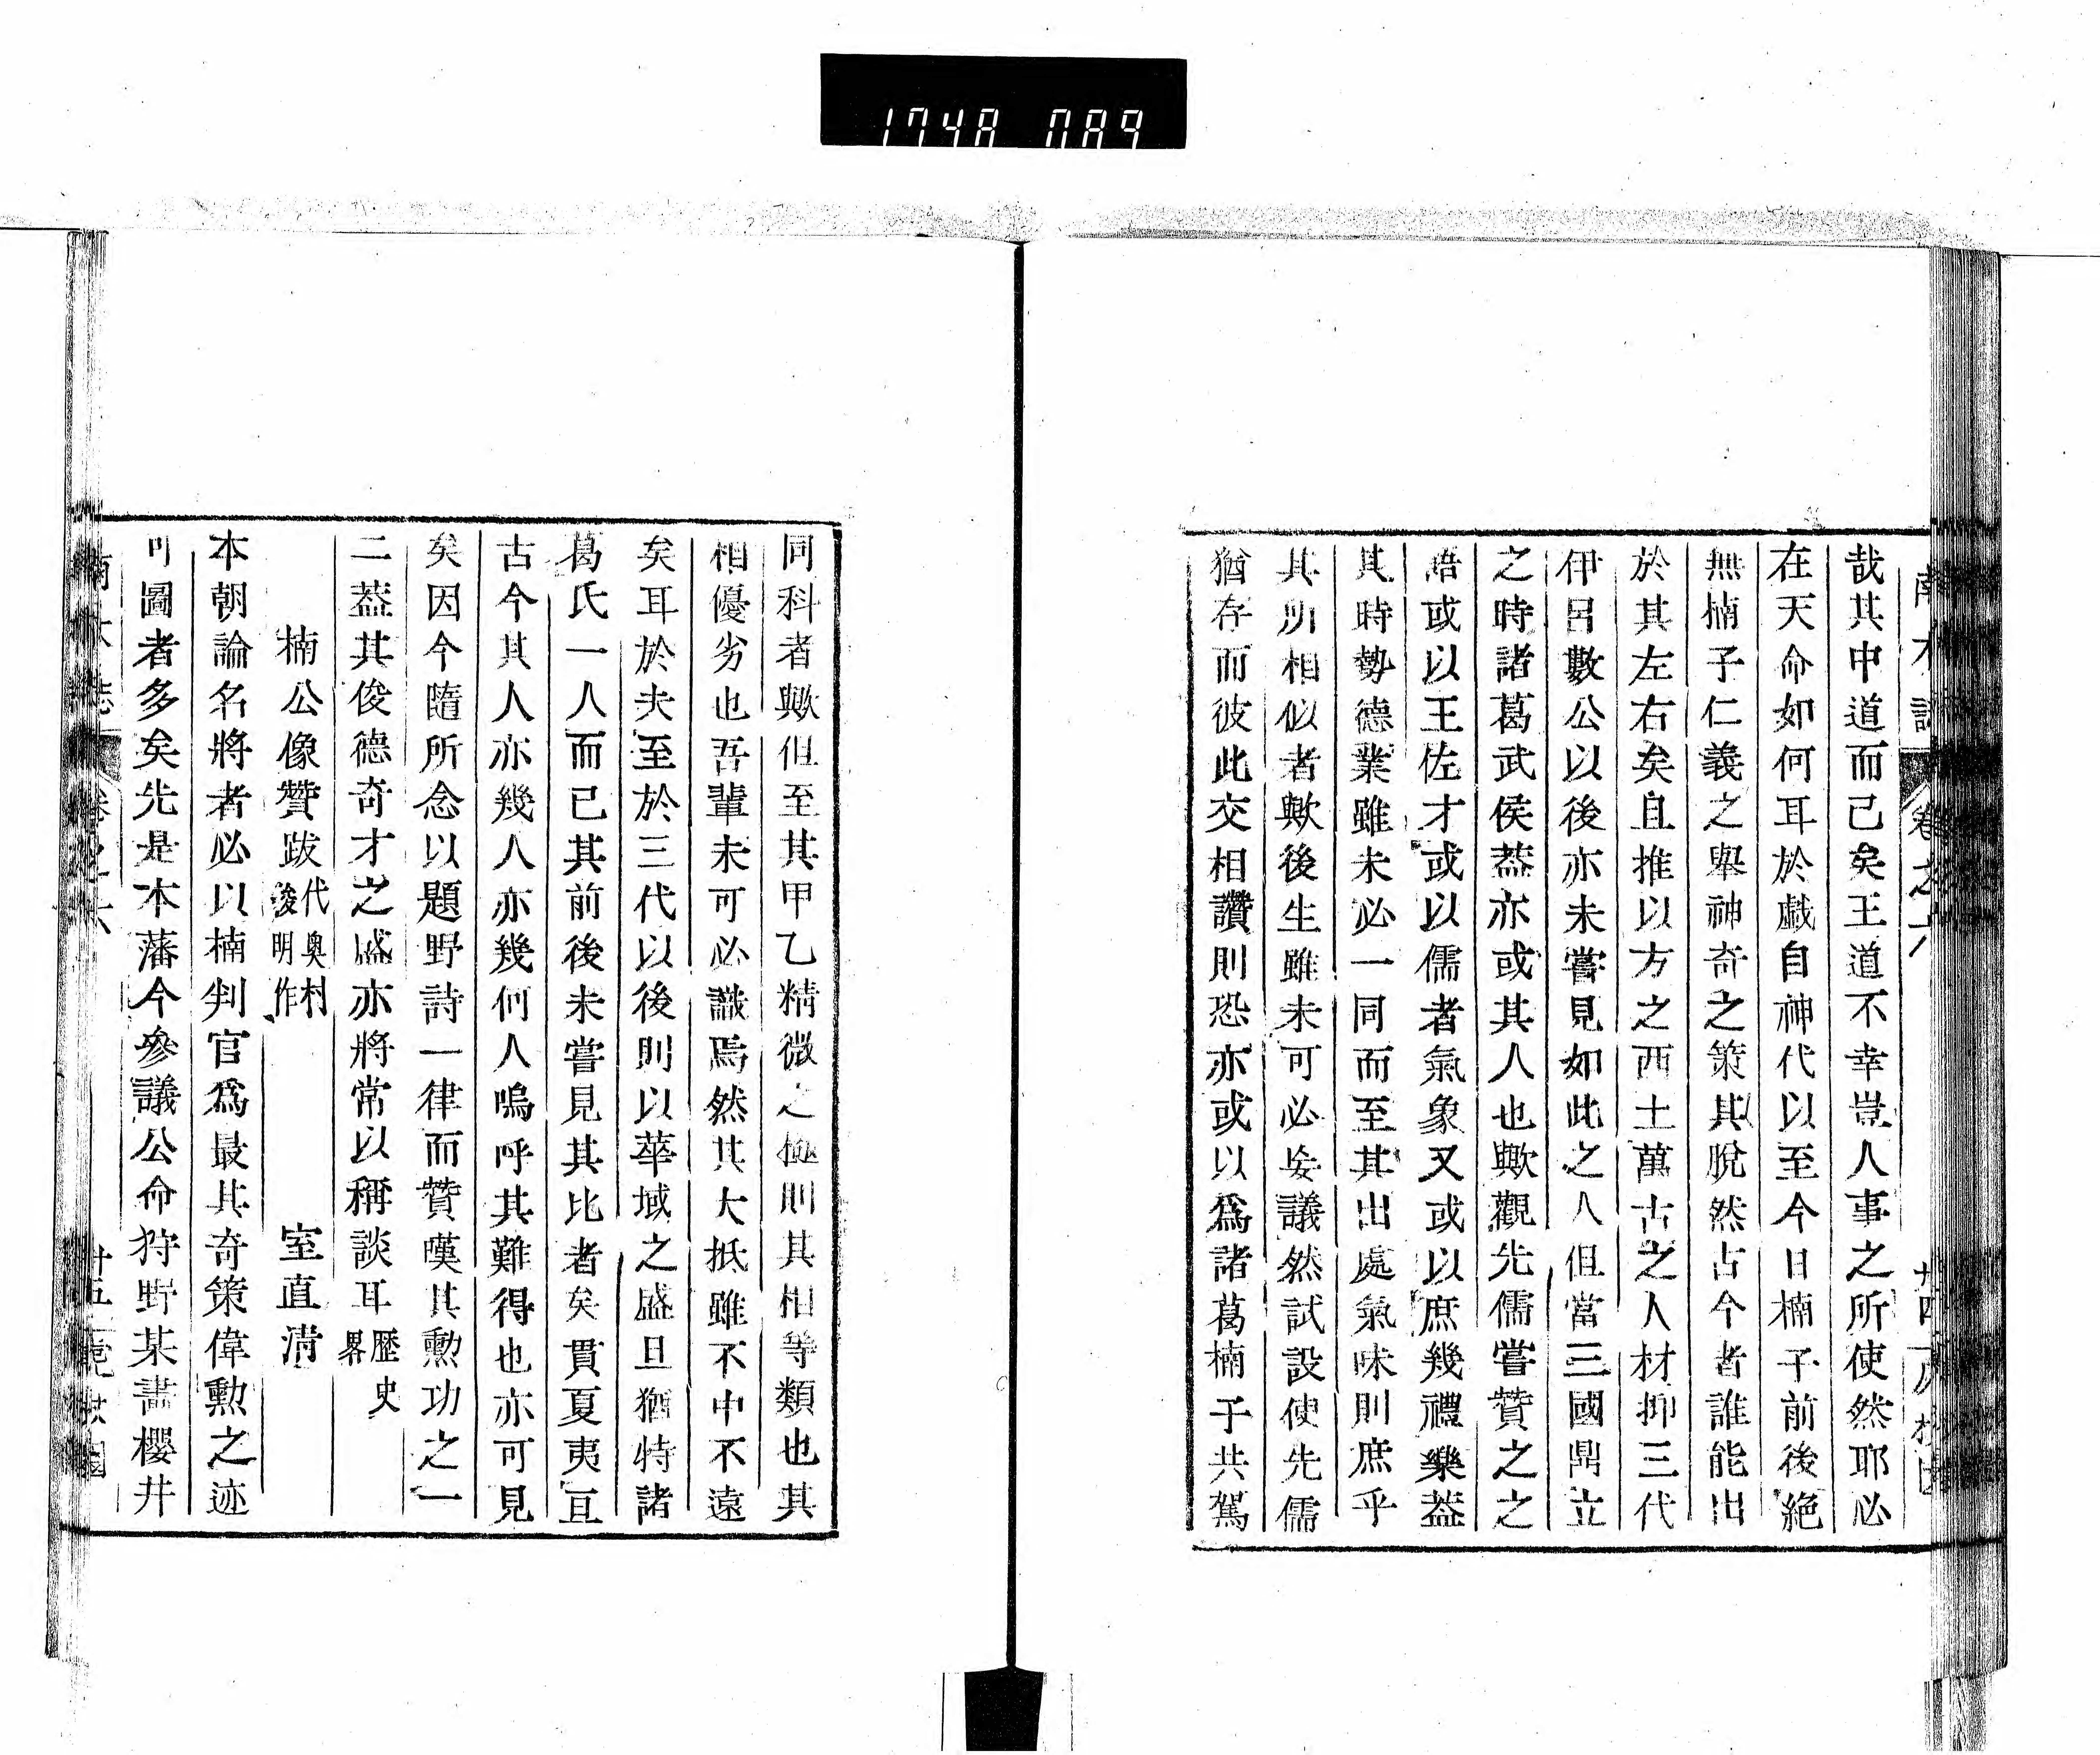 1748 089
南木誌 卷之六 廿四
哉其中道而已矣王道不幸豈人事之所使然耶必
在天命如何耳於戲自神代以至今日楠子前後絕
無楠子仁義之舉神奇之策其脫然古今者誰能出
於其左右矣且推以方之西土萬古之人材抑三代
伊呂數公以後亦未嘗見如此之人但當三國鼎立
之時諸葛武侯葢亦或其人也歟觀先儒嘗贊之之
語或以王佐才或以儒者氣象又或以庶幾禮樂葢
其時勢德業雖未必一同而至其出處氣味則庶乎
其所相似者歟後生雖未可必妄議然試設使先儒
猶存而彼此交相讚則恐亦或以爲諸葛楠子共駕
同科者歟但至其甲乙精微之極則其相等類也其
相優劣也吾輩未可必識焉然其大抵雖不中不遠
矣耳於夫至於三代以後則以華域之盛且猶特諸
葛氏一人而已其前後未嘗見其比者矣貫夏夷亘
古今其人亦幾人亦幾何人嗚呼其難得也亦可見
矣因今隨所念以題野詩一律而贊嘆其勳功之一
二葢其俊德奇才之盛亦將常以稱談耳歷史畧
楠公像贊跋代奥村後明作 室直清
本朝論名將者必以楠判官爲最其奇策偉勳之迹
可圖者多矣先是本藩今參議公命狩野某畵櫻井
南木誌 卷之六 廿五